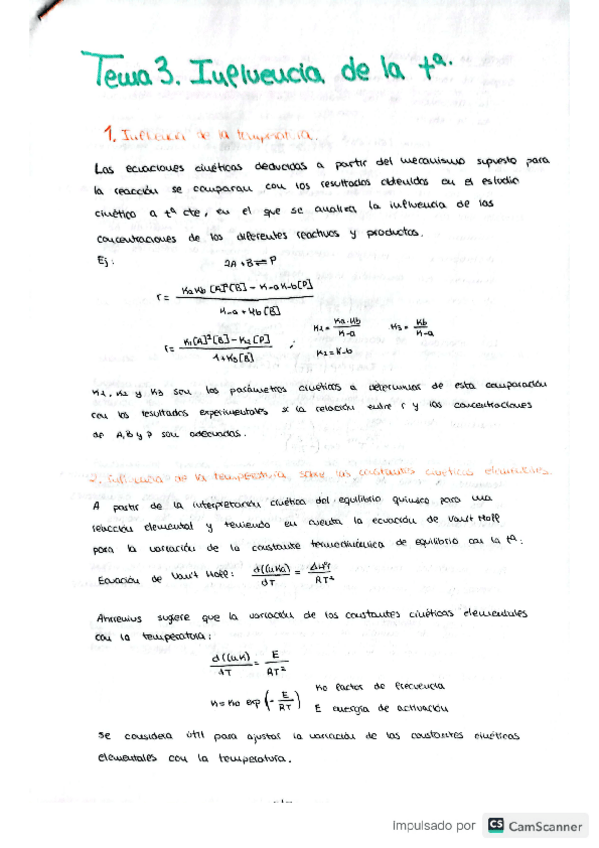 Tema 3. Influencia de la tª.
1. Influencia de la temperatura.
Las ecuaciones cinéticas deducidas a partir del mecanismo supuesto para
la reacción se comparan con los resultados obtenidos en el estudio
cinético a tª cte, en el que se analiza la influencia de las
concentraciones de los diferentes reactivos y productos.
Ej: 2A + B ⇌ P
r = (KaKb [A]²[B] - K-a K-b[P]) / (K-a + Kb[B])
r = (K1[A]²[B] - K2[P]) / (1 + K3[B]) ; K1 = Ka·Kb / K-a K3 = Kb / K-a
K2 = K-b
K1, K2 y K3 son los parámetros cinéticos a determinar de esta comparación
con los resultados experimentales si la relación entre r y las concentraciones
de A, B y P son adecuadas.
2. Influencia de la temperatura sobre las constantes cinéticas elementales.
A partir de la interpretación cinética del equilibrio químico para una
reacción elemental y teniendo en cuenta la ecuación de Vant Hoff
para la variación de la constante termodinámica de equilibrio con la tª:
Ecuación de Vant Hoff: d(LnKa) / dT = ΔHºr / RT²
Arrhenius sugiere que la variación de las constantes cinéticas elementales
con la temperatura:
d(LnK) / dT = E / RT²
K = Ko exp (- E / RT) Ko factor de frecuencia
E energía de activación
se considera útil para ajustar la variación de las constantes cinéticas
elementales con la temperatura.
-1-
Impulsado por CS CamScanner